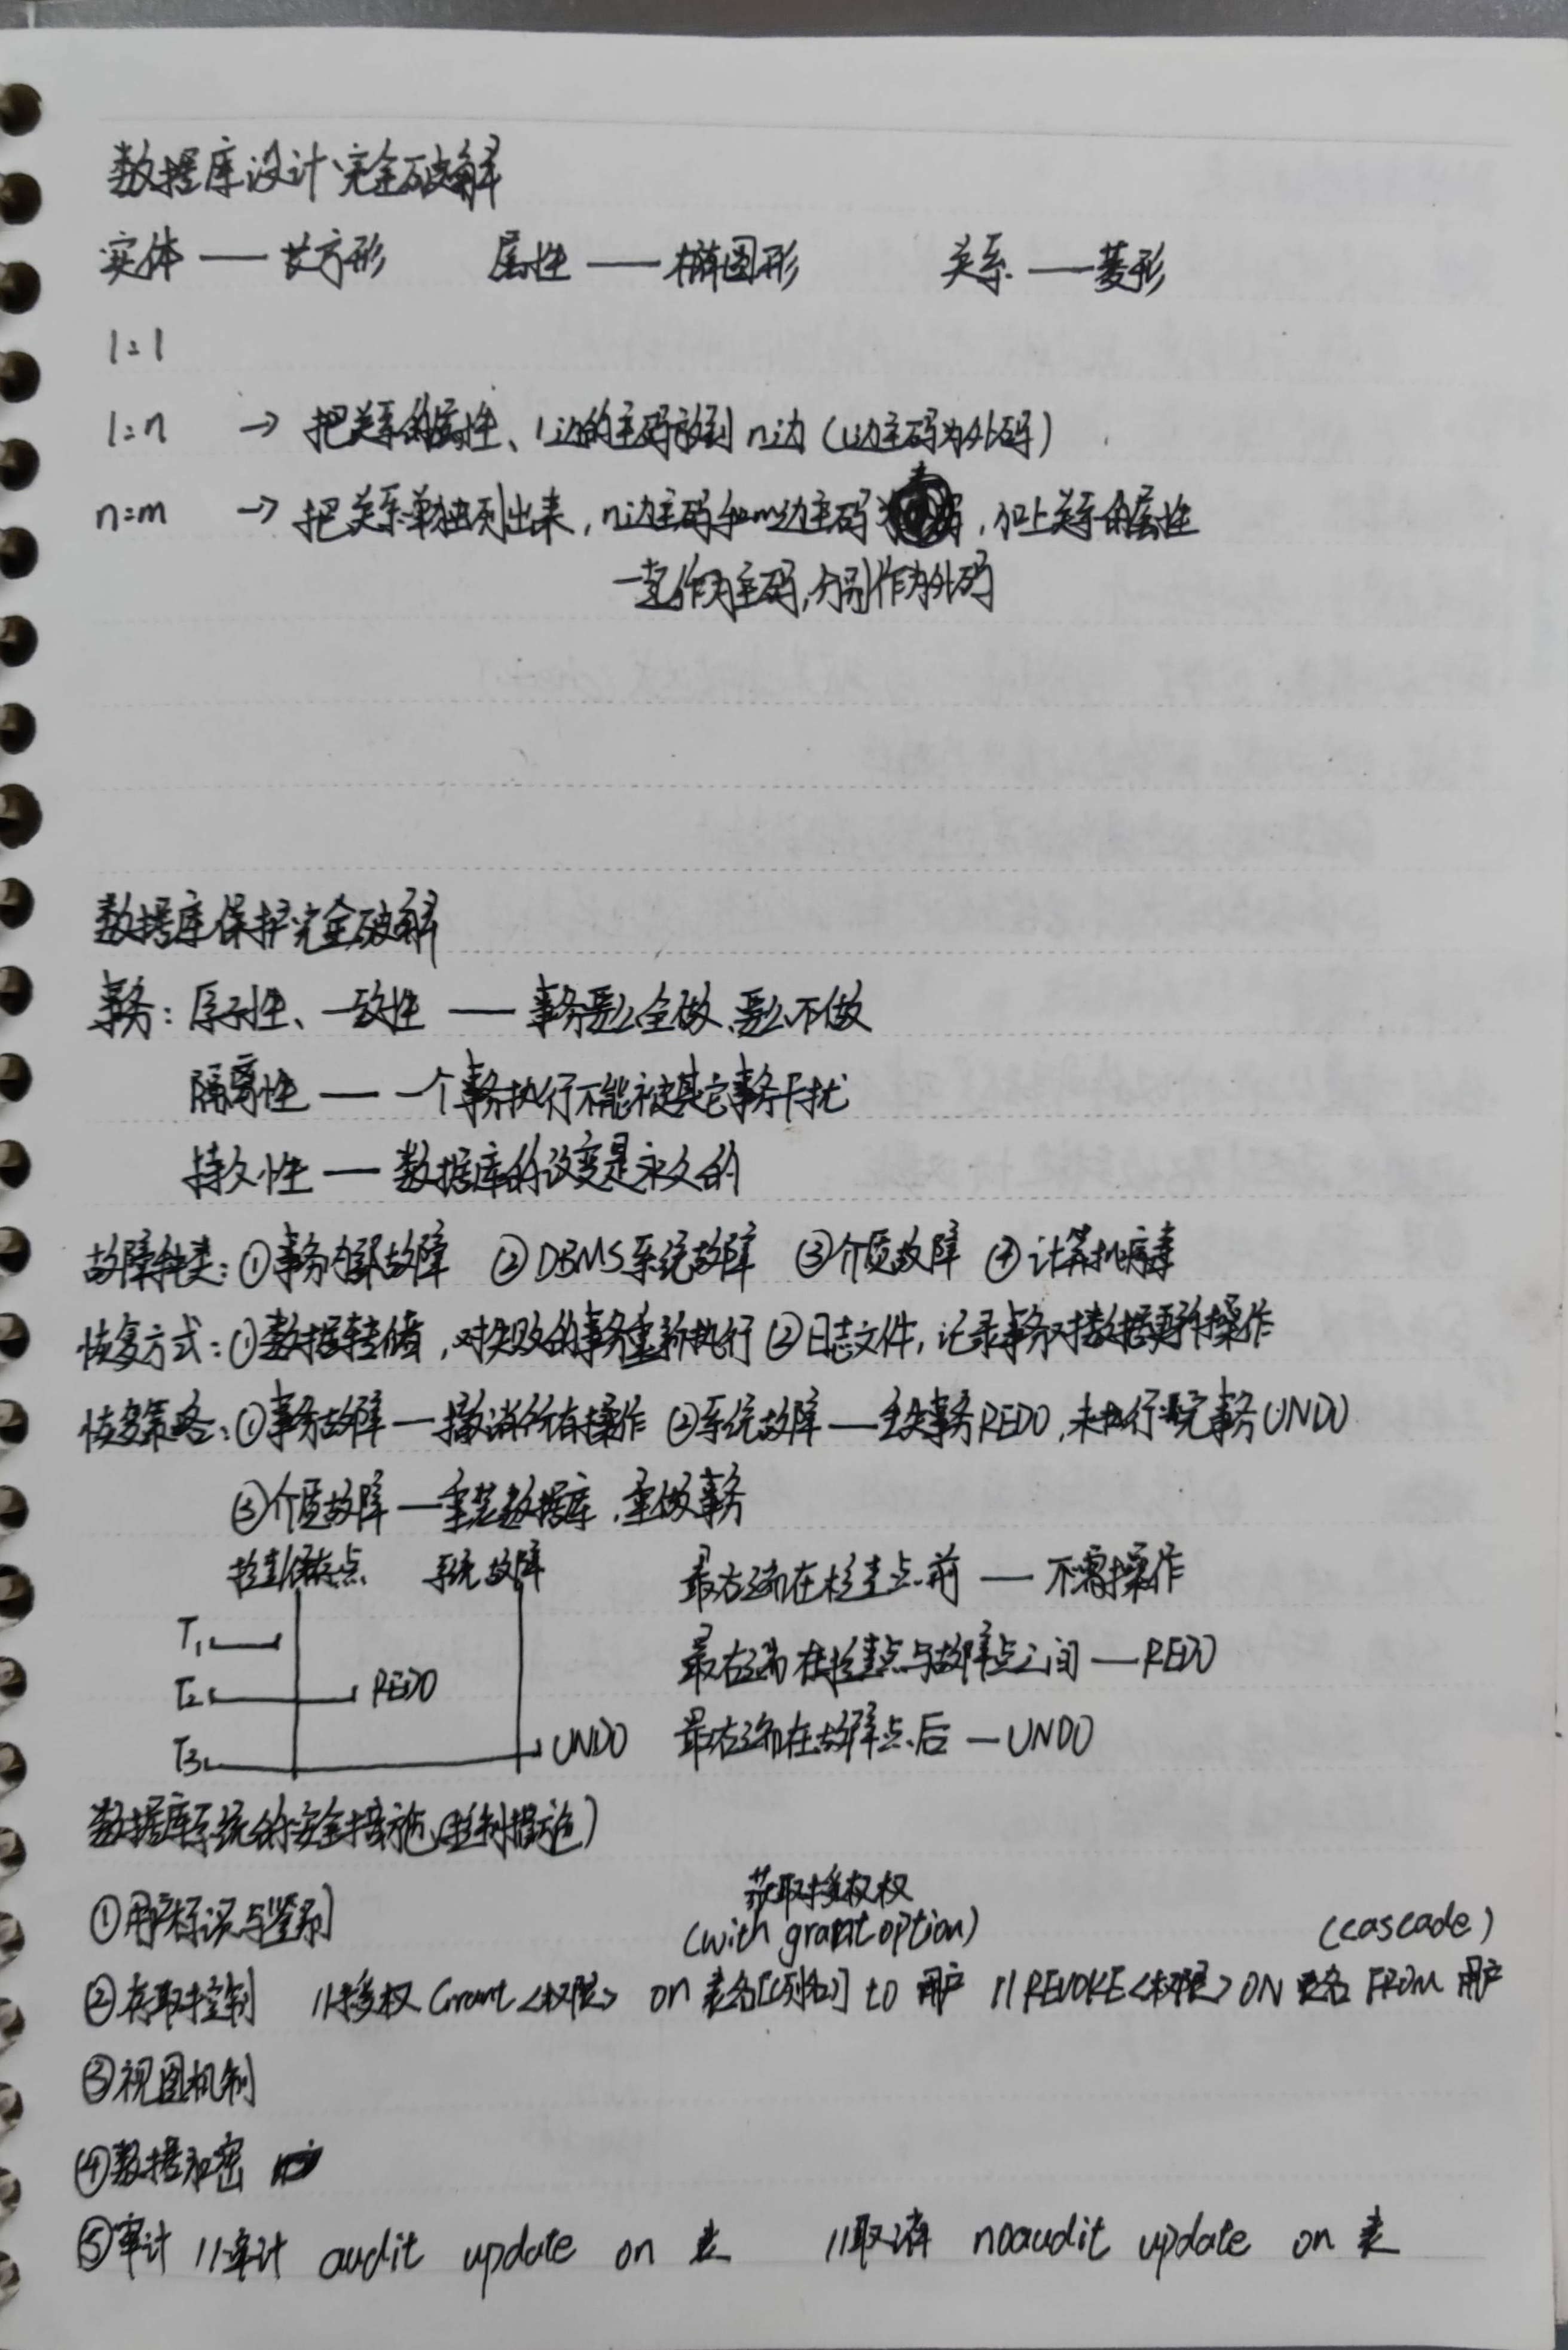 数据库设计完全破解
实体 —— 长方形 属性 —— 椭圆形 关系 —— 菱形
1:1
1:n → 把关系的属性、1边的主码放到n边(1边主码为外码)
n:m → 把关系单独列出来,n边主码和m边主码,加上关系的属性
一起作为主码,分别作为外码
数据库保护完全破解
事务:原子性、一致性 —— 事务要么全做、要么不做
隔离性 —— 一个事务执行不能被其它事务干扰
持久性 —— 数据库的改变是永久的
故障种类:①事务内部故障 ②DBMS系统故障 ③介质故障 ④计算机病毒
恢复方式:①数据转储,对失败的事务重新执行 ②日志文件,记录事务对数据更新操作
恢复策略:①事务故障—撤消所有操作 ②系统故障—丢失事务REDO,未执行完事务UNDO
③介质故障—重装数据库,重做事务
检查点 系统故障 最右端在检查点前 — 不需操作
T1
最右端在检查点与故障点之间 — REDO
T2 REDO
T3 UNDO 最右端在故障点后 — UNDO
数据库系统的安全措施(控制措施)
获取授权权
①用户标识与鉴别 (with grant option) (cascade)
②存取控制 //授权 Grant <权限> on 表名[(列名)] to 用户 // REVOKE <权限> ON 表名 FROM 用户
③视图机制
④数据加密
⑤审计 //审计 audit update on 表 //取消 noaudit update on 表